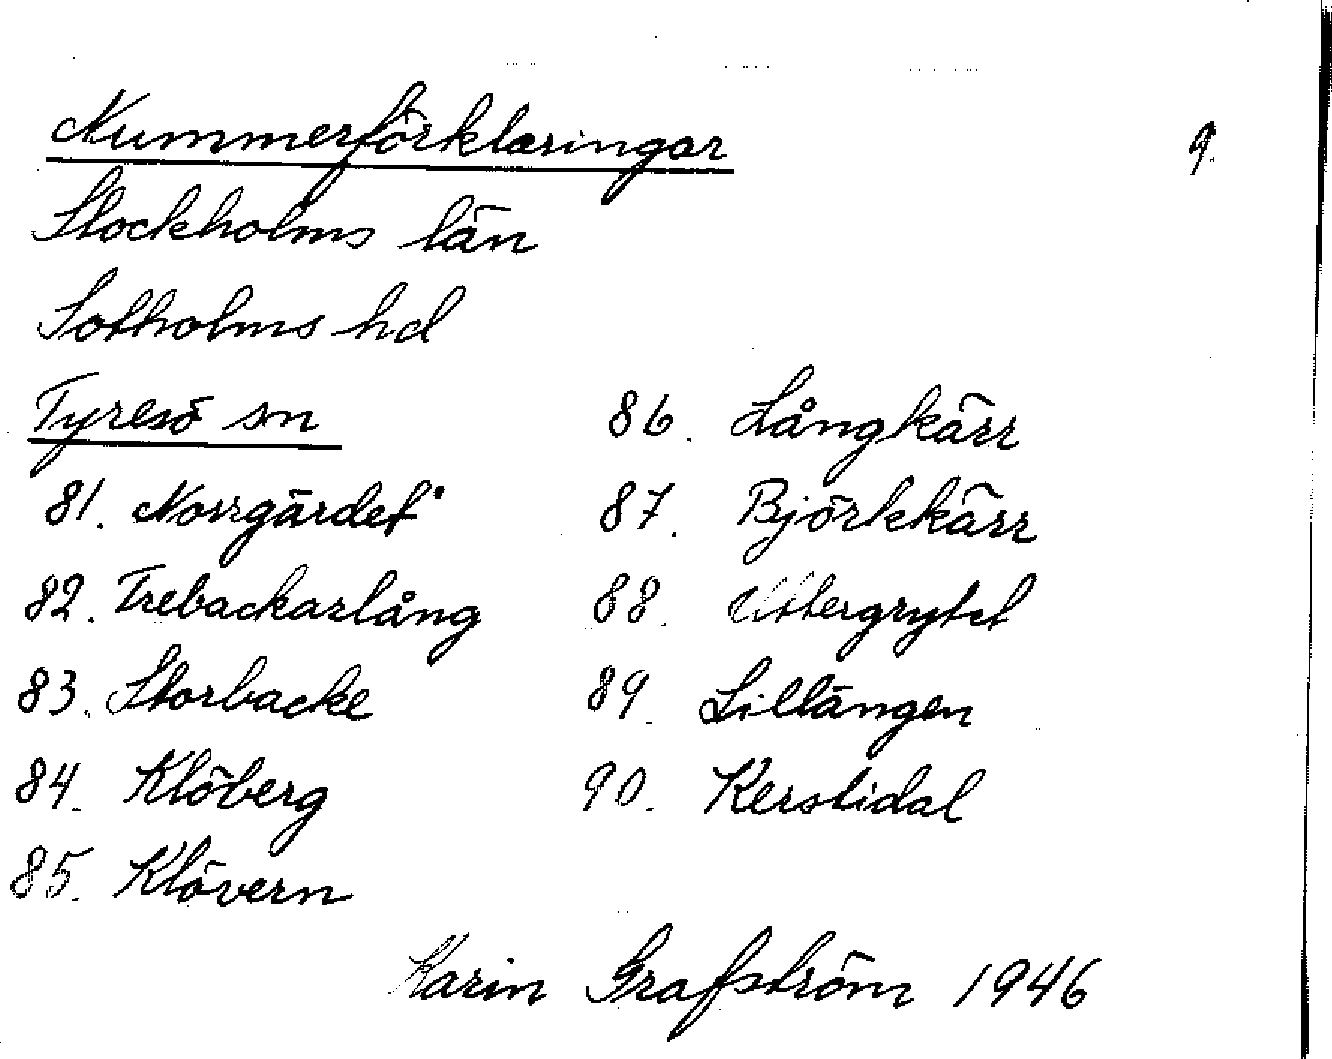 Nummerförklaringar 9.
Stockholms län
Sotholms hd
Tyresö sn
81. Norrgärdet
82. Trebackarlång
83. Storbacke
84. Klöberg
85. Klövern
86. Långkärr
87. Björkkärr
88.
89. Lillängen
90. Kerstidal
Karin Grafström 1946